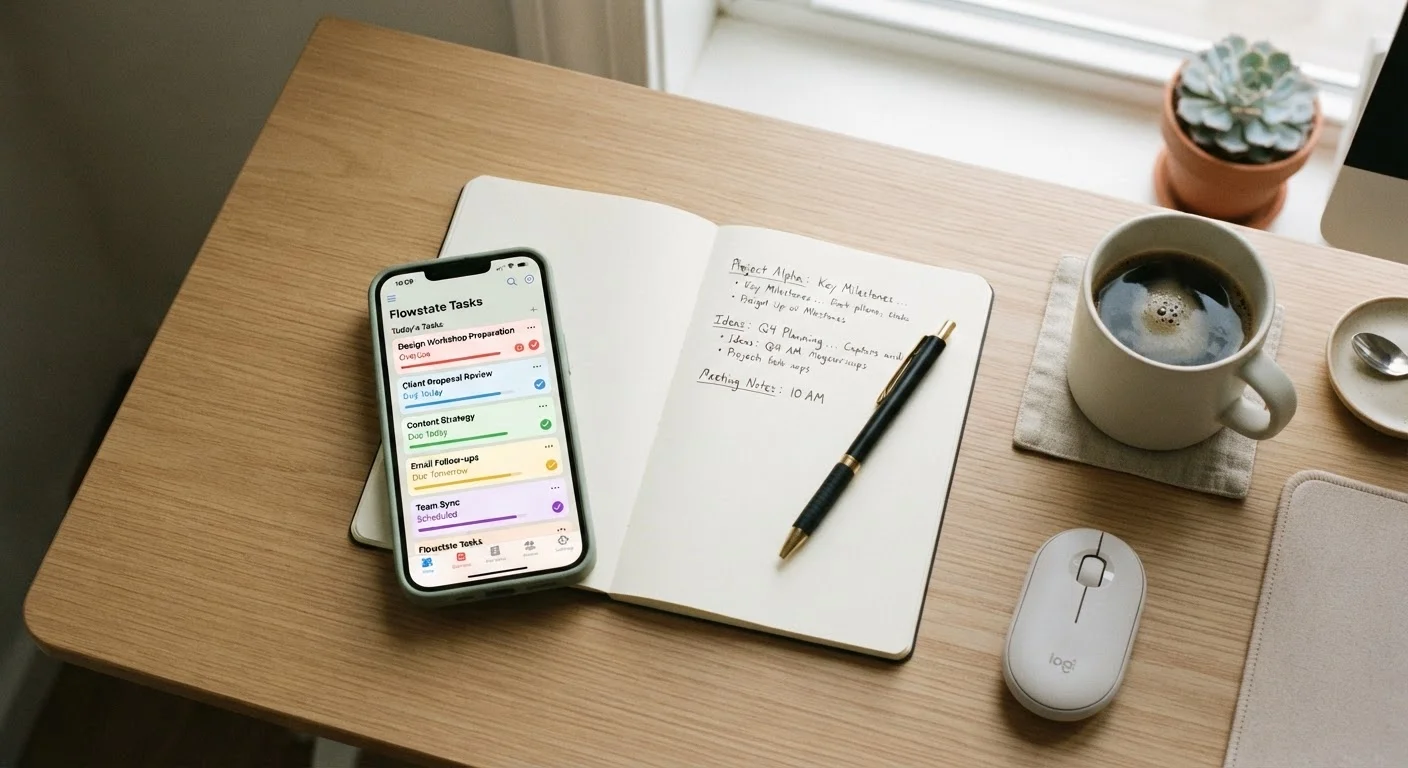 10:09
Flowstate Tasks
Today's Tasks
Design Workshop Preparation
Overdue
Client Proposal Review
Due Today
Content Strategy
Due Today
Email Follow-ups
Due Tomorrow
Team Sync
Scheduled
Flowstate Tasks
Project Alpha: Key Milestones...
• Key Milestones...
Milestones
Ideas: Q4 Planning... and
• Ideas: AM
• Project
Meeting Notes: 10 AM
logi